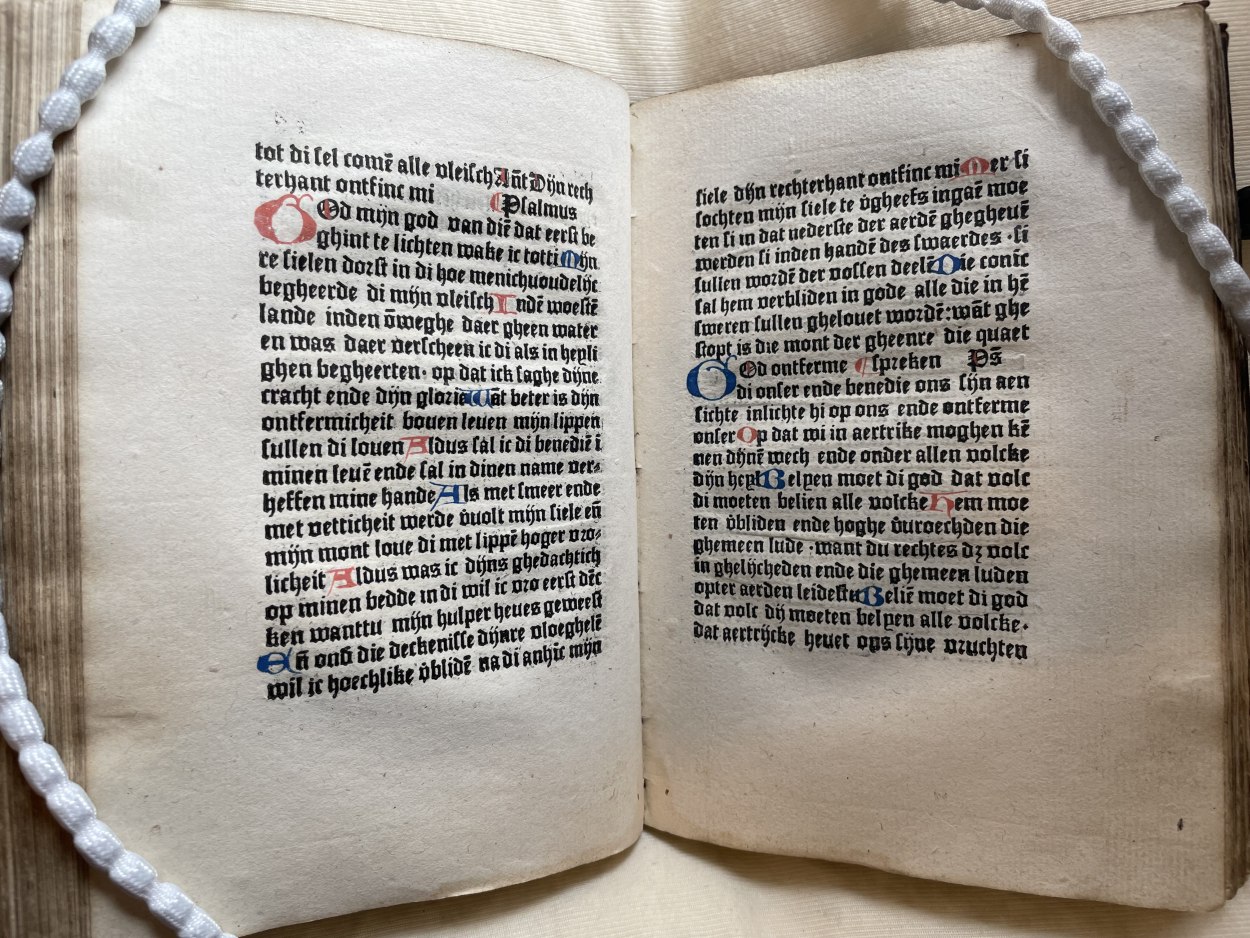 tot di sel comē alle vleisch Añt Dijn rech
terhant ontfinc mi Psalmus
GOd mijn god van diē dat eerst be
ghint te lichten wake ic totti Mijn
re sielen dorst in di hoe menichuoudelijc
begheerde di mijn vleisch Indē woestē
lande inden ōweghe daer gheen water
en was daer verscheen ic di als in heyli
ghen begheerten· op dat ick saghe dijne
cracht ende dijn glorie Wāt beter is dijn
ontfermicheit bouen leuen mijn lippen
sullen di louen Aldus sal ic di benediē i
minen leuē ende sal in dinen name ver⸗
heffen mine hande Als met smeer ende
met vetticheit werde v̄uolt mijn siele eñ
mijn mont loue di met lippē hoger vro⸗
licheit Aldus was ic dijns ghedachtich
op minen bedde in di wil ic vro eerst dēc
ken wanttu mijn hulper heues geweest
Eñ ond̄ die deckenisse dijnre vloeghelē
wil ic hoechlike v̄blidē na di anhic mijn
siele dijn rechterhant ontfinc mi Mer si
sochten mijn siele te v̄gheefs ingaē moe
ten si in dat nederste der aerdē ghegheuē
werden si inden handē des swaerdes · si
sullen wordē der vossen deelē Die conīc
sal hem verbliden in gode alle die in hē
sweren sullen ghelouet wordē: wāt ghe
stopt is die mont der gheenre die quaet
GOd ontferme spreken Ps̄
di onser ende benedie ons sijn aen
sichte inlichte hi op ons ende ontferme
onser Op dat wi in aertrike moghen kē
nen dijnē wech ende onder allen volcke
dijn heyl Belyen moet di god dat volc
di moeten belien alle volcke Hem moe
ten v̄bliden ende hoghe v̄uroechden die
ghemeen lude · want du rechtes dꝫ volc
in ghelijcheden ende die ghemeen luden
opter aerden leidestu Beliē moet di god
dat volc dij moeten belyen alle volcke·
dat aertrijcke heuet ons sijne vruchten